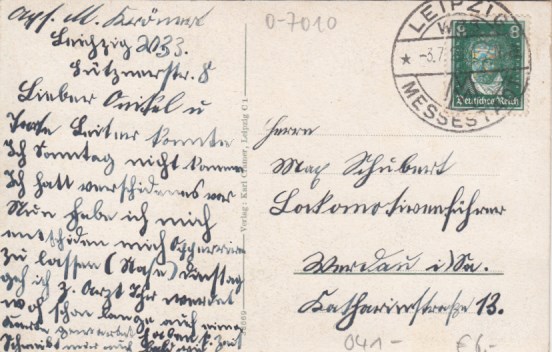 Aps. M. Krömer
Leipzig W 33.
Lütznerstr. 8
Lieber Onkel u
Tante Leider konnte
Ich Sonntag nicht kommen
Ich hatt verschiedenes vor
Nun habe ich mich
entschieden mich Opperiren
zu lassen (Nase) dienstag
geh ich z. Arzt Ihr werdet
woh schon lange auf eine
0-7010
LEIPZIG
W
* -3.7.
MESSESTA
8 8
Deutsches Reich
Verlag: Karl Cramer, Leipzig C 1
Herrn
Max Schubert
Lokomotivenführer
Werdau i/Sa.
Katharinenstraße 13.
041-
€6,-